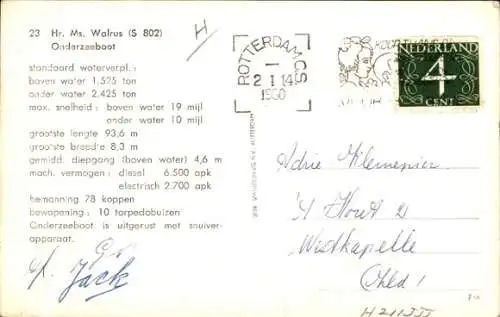 23 Hr. Ms. Walrus (S 802)
Onderzeeboot
standaard waterverpl.:
boven water 1.525 ton
onder water 2.425 ton
max. snelheid: boven water 19 mijl
onder water 10 mijl
grootste lengte 93,6 m
grootste breedte 8,3 m
gemidd. diepgang (boven water) 4,6 m
mach. vermogen: diesel 6.500 apk
electrisch 2.700 apk
bemanning 78 koppen
bewapening: 10 torpedobuizen
Onderzeeboot is uitgerust met snuiver-
apparaat.
Jack
H
ROTTERDAM CS
2 I 14
1960
NEDERLAND
4
CENT
Adrie
't Hout 2
Westkapelle